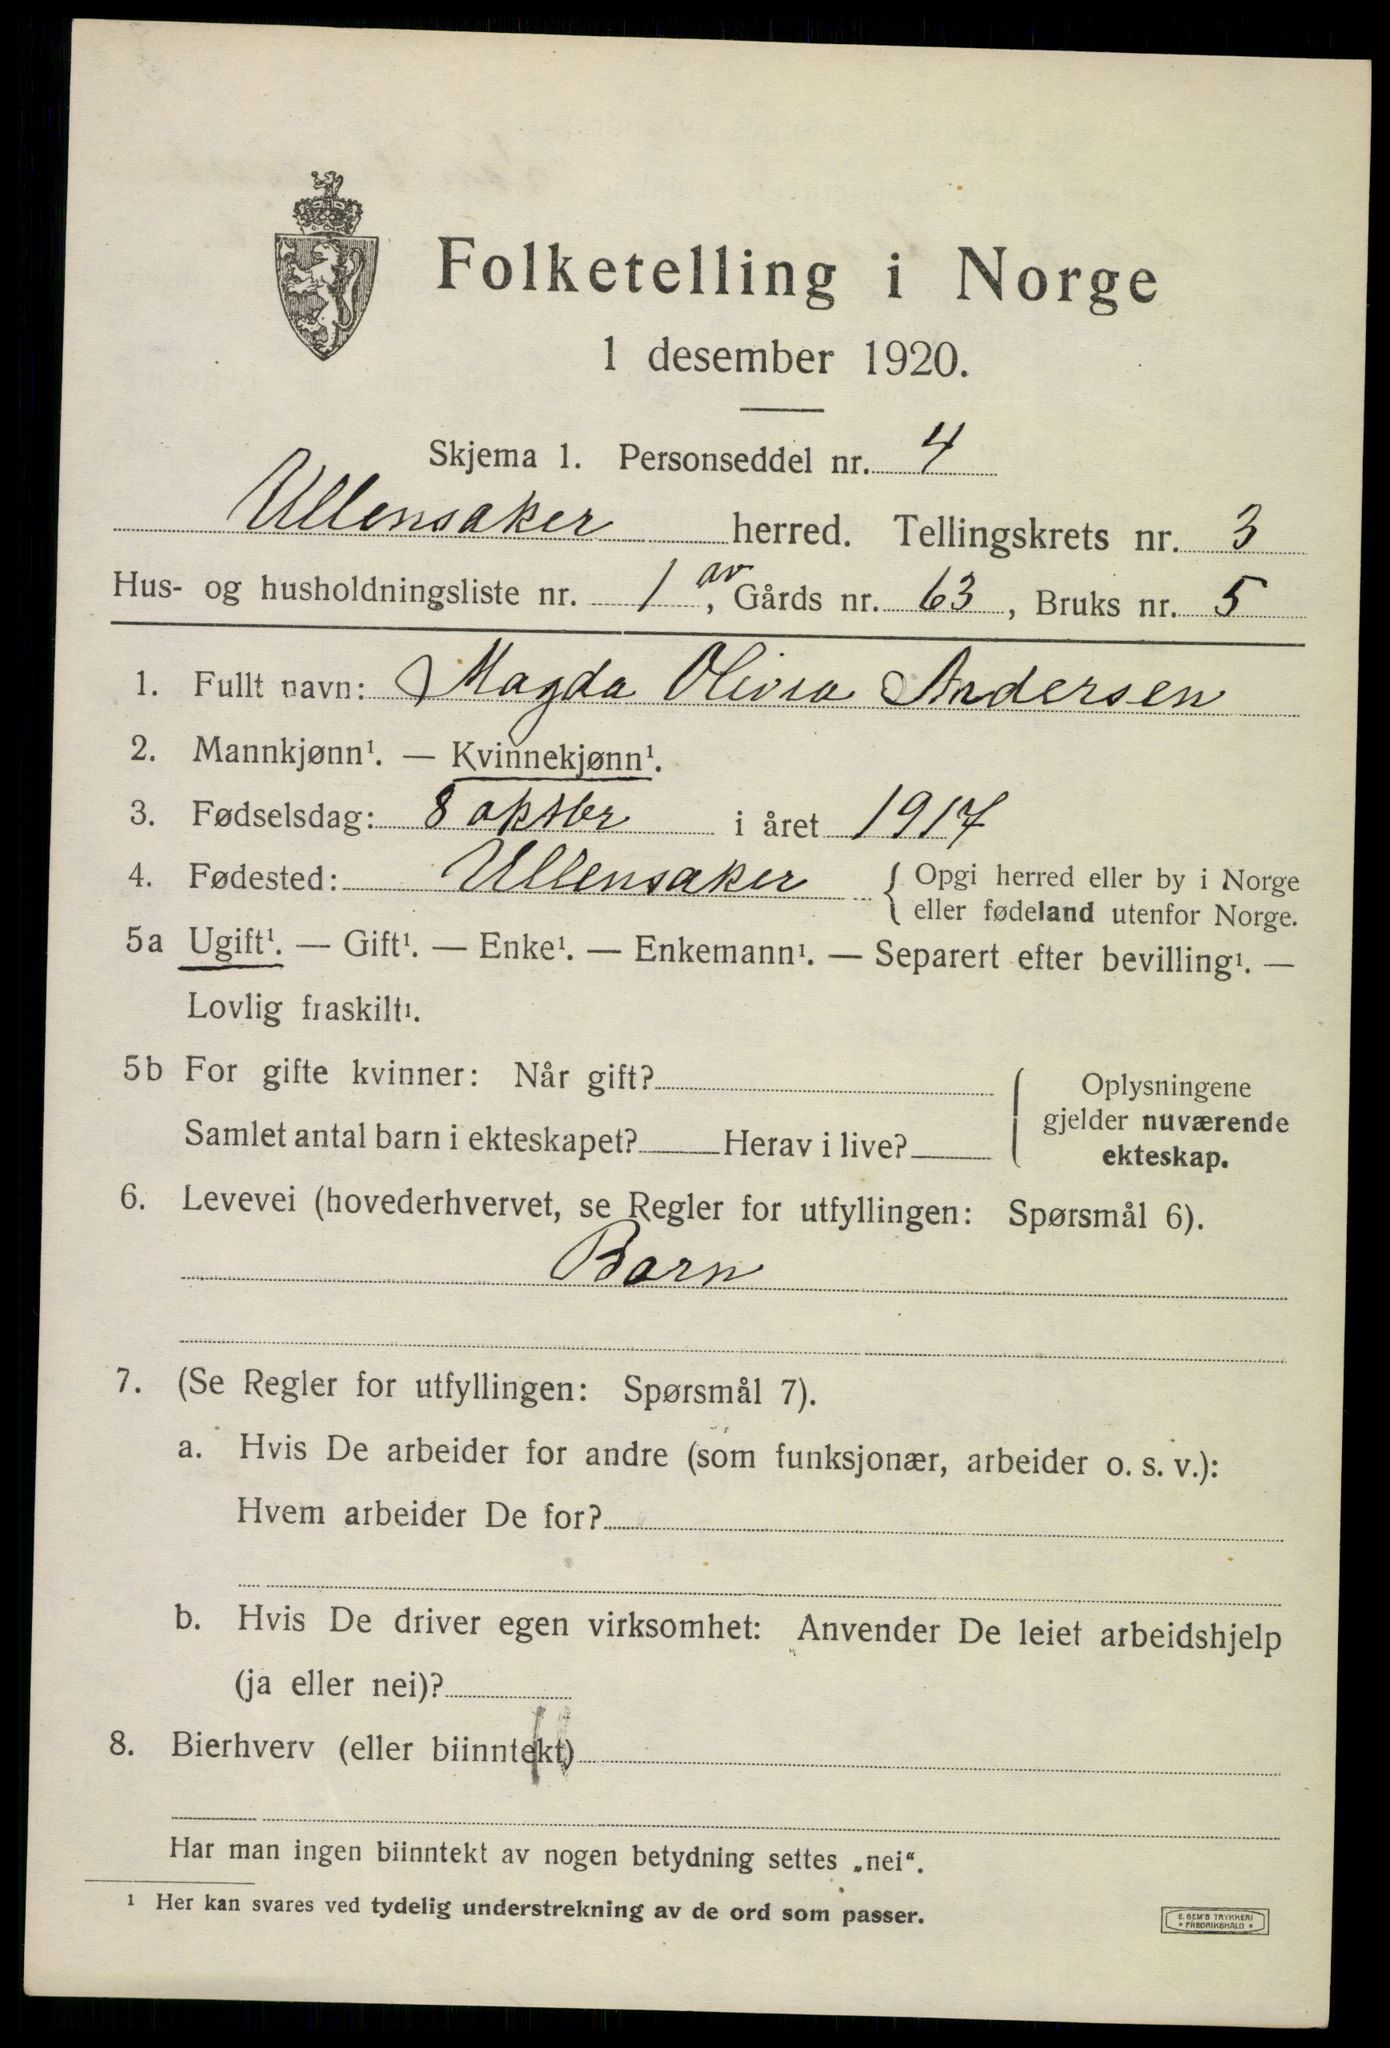 Folketelling i Norge
1 desember 1920.
Skjema 1. Personseddel nr. 4
Ullensaker herred. Tellingskrets nr. 3
Hus- og husholdningsliste nr. 1 av, Gårds nr. 63, Bruks nr. 5
1. Fullt navn: Magda Olivia Andersen
2. Mannkjønn¹. — Kvinnekjønn¹.
3. Fødselsdag: 8 oktbr i året 1917
4. Fødested: Ullensaker { Opgi herred eller by i Norge
eller fødeland utenfor Norge.
5a Ugift¹. — Gift¹. — Enke¹. — Enkemann¹. — Separert efter bevilling¹. —
Lovlig fraskilt¹.
5b For gifte kvinner: Når gift?
Samlet antal barn i ekteskapet? Herav i live?
Oplysningene
gjelder nuværende
ekteskap.
6. Levevei (hovederhvervet, se Regler for utfyllingen: Spørsmål 6).
Barn
7. (Se Regler for utfyllingen: Spørsmål 7).
a. Hvis De arbeider for andre (som funksjonær, arbeider o. s. v.):
Hvem arbeider De for?
b. Hvis De driver egen virksomhet: Anvender De leiet arbeidshjelp
(ja eller nei)?
8. Bierhverv (eller biinntekt)
Har man ingen biinntekt av nogen betydning settes „nei“.
¹ Her kan svares ved tydelig understrekning av de ord som passer.
E. SEM'S TRYKKERI
* FREDRIKSHALD *